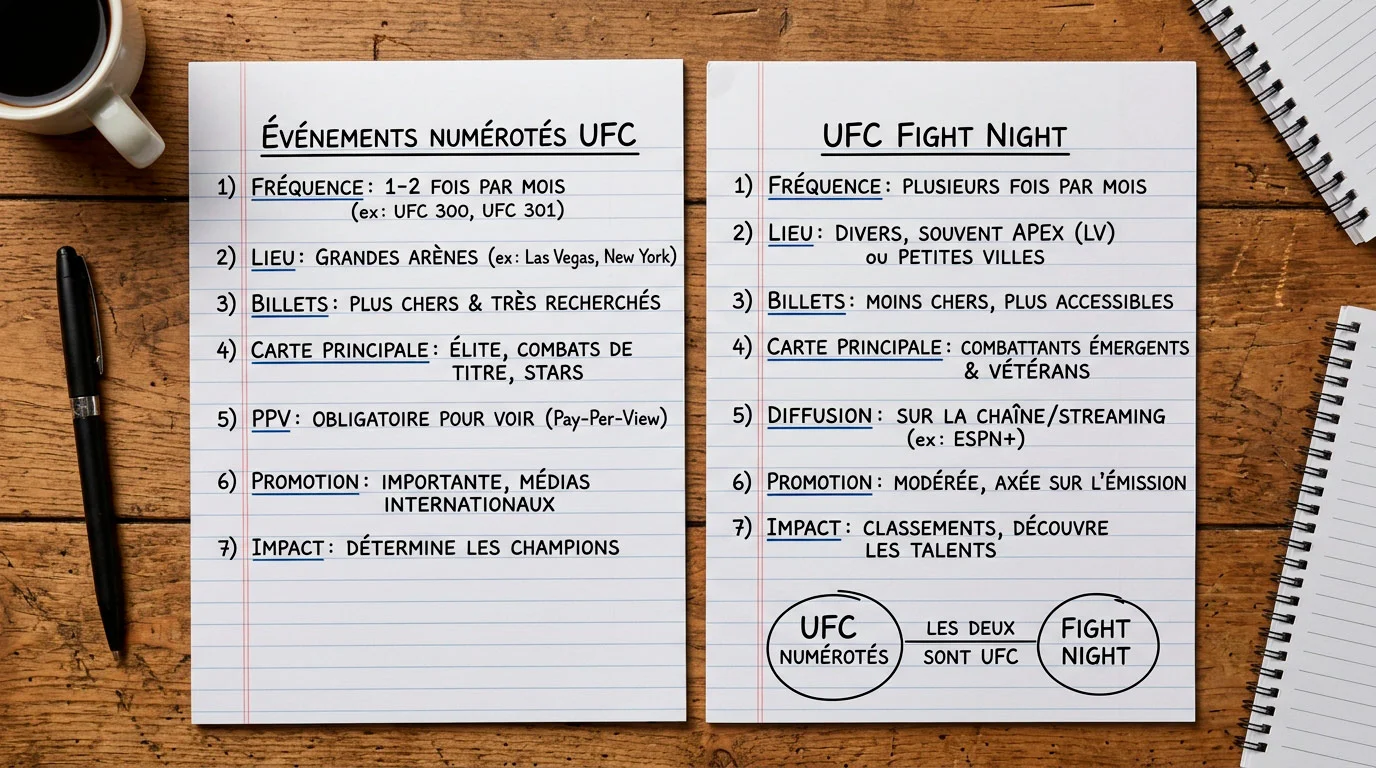 ÉVÉNEMENTS NUMÉROTÉS UFC
1) FRÉQUENCE: 1-2 FOIS PAR MOIS
(ex: UFC 300, UFC 301)
2) LIEU: GRANDES ARÈNES (ex: Las Vegas, New York)
3) BILLETS: PLUS CHERS & TRÈS RECHERCHÉS
4) CARTE PRINCIPALE: ÉLITE, COMBATS DE
TITRE, STARS
5) PPV: OBLIGATOIRE POUR VOIR (Pay-Per-View)
6) PROMOTION: IMPORTANTE, MÉDIAS
INTERNATIONAUX
7) IMPACT: DÉTERMINE LES CHAMPIONS
UFC FIGHT NIGHT
1) FRÉQUENCE: PLUSIEURS FOIS PAR MOIS
2) LIEU: DIVERS, SOUVENT APEX (LV)
OU PETITES VILLES
3) BILLETS: MOINS CHERS, PLUS ACCESSIBLES
4) CARTE PRINCIPALE: COMBATTANTS ÉMERGENTS
& VÉTÉRANS
5) DIFFUSION: SUR LA CHAÎNE/STREAMING
(ex: ESPN+)
6) PROMOTION: MODÉRÉE, AXÉE SUR L'ÉMISSION
7) IMPACT: CLASSEMENTS, DÉCOUVRE
LES TALENTS
UFC
NUMÉROTÉS
LES DEUX
SONT UFC
FIGHT
NIGHT